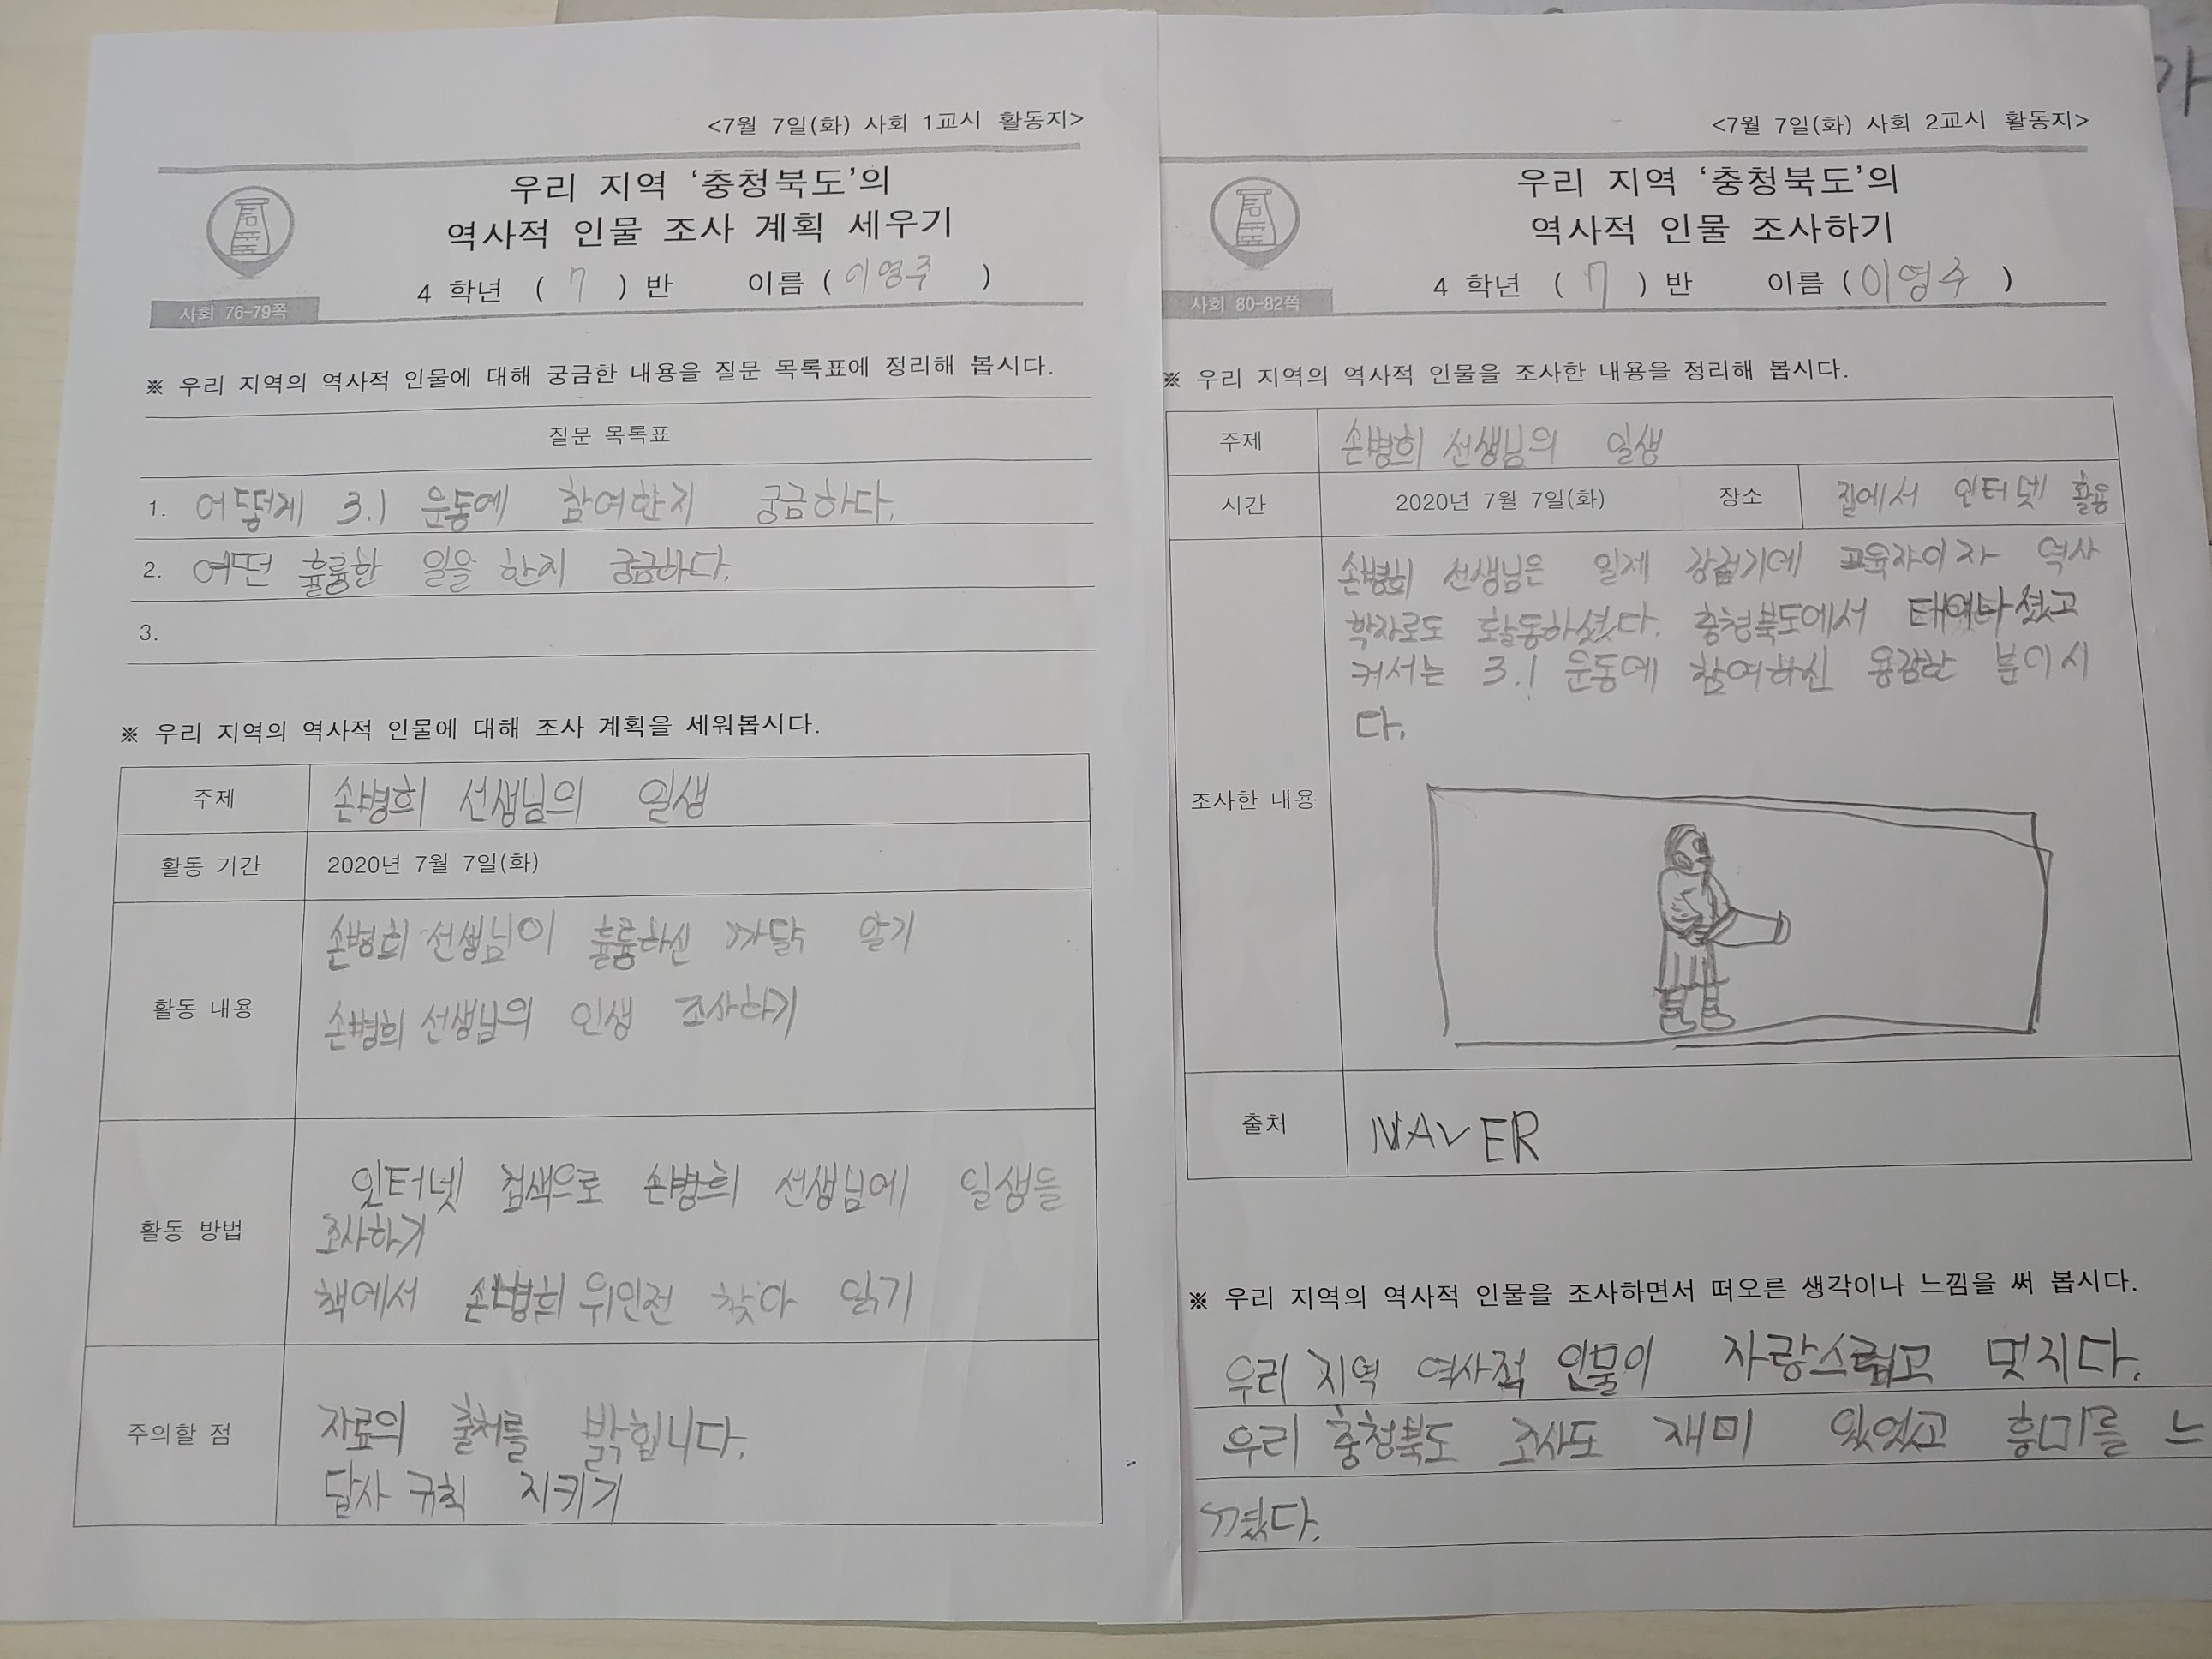 <7월 7일(화) 사회 1교시 활동지>
우리 지역 '충청북도'의
역사적 인물 조사 계획 세우기
4 학년 ( 7 ) 반 이름 ( 이영주 )
사회 76-79쪽
※ 우리 지역의 역사적 인물에 대해 궁금한 내용을 질문 목록표에 정리해 봅시다.
질문 목록표
1. 어떻게 3.1 운동에 참여한지 궁금하다.
2. 어떤 휼륭한 일을 한지 궁금하다.
3.
※ 우리 지역의 역사적 인물에 대해 조사 계획을 세워봅시다.
주제 손병희 선생님의 일생
활동 기간 2020년 7월 7일(화)
활동 내용
손병희 선생님이 휼륭하신 까닭 알기
손병희 선생님의 인생 조사하기
활동 방법
인터넷 검색으로 손병희 선생님에 일생을
조사하기
책에서 손병희 위인전 찾아 읽기
주의할 점
자료의 출처를 밝힙니다.
답사 규칙 지키기
<7월 7일(화) 사회 2교시 활동지>
우리 지역 '충청북도'의
역사적 인물 조사하기
4 학년 ( 7 ) 반 이름 ( 이영주 )
사회 80-82쪽
※ 우리 지역의 역사적 인물을 조사한 내용을 정리해 봅시다.
주제 손병희 선생님의 일생
시간 2020년 7월 7일(화) 장소 집에서 인터넷 활용
조사한 내용
손병희 선생님은 일제 강점기에 교육자이자 역사
학자로도 활동하셨다. 충청북도에서 태어나셨고
커서는 3.1 운동에 참여하신 용감한 분이시
다.
출처 NAVER
※ 우리 지역의 역사적 인물을 조사하면서 떠오른 생각이나 느낌을 써 봅시다.
우리 지역 역사적 인물이 자랑스럽고 멋지다.
우리 충청북도 조사도 재미 있었고 흥미를 느
꼈다.
가